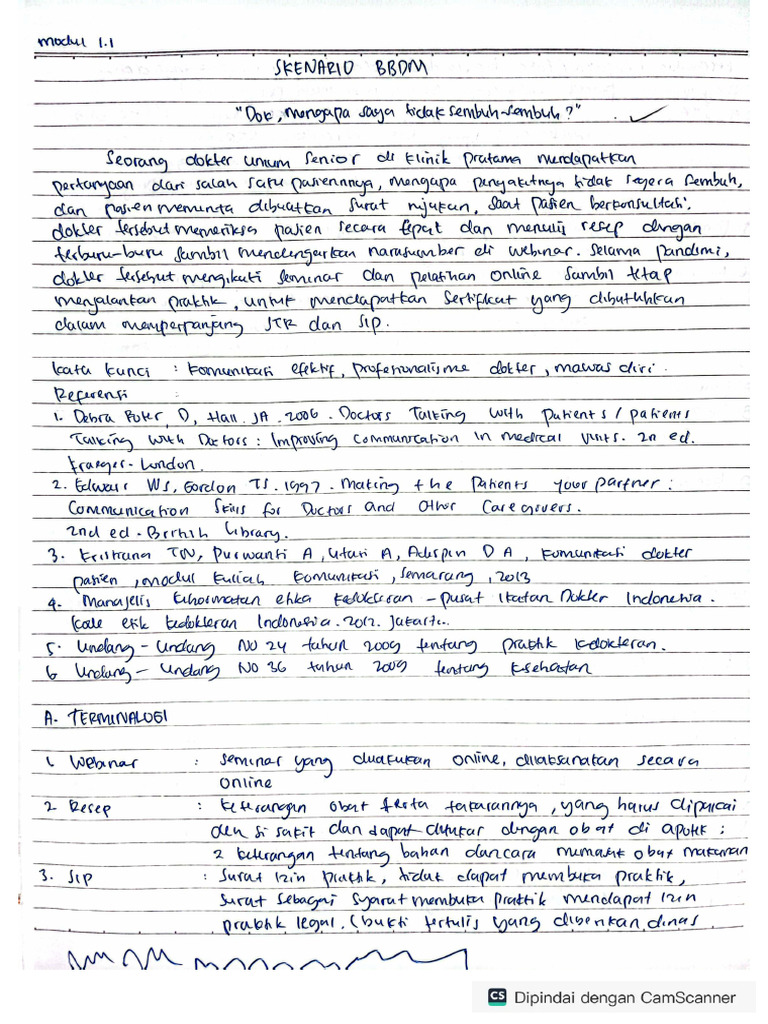 modul 1.1
SKENARIO BBDM
"Dok, mengapa saya tidak sembuh-sembuh?"
Seorang dokter umum senior di klinik pratama mendapatkan
pertanyaan dari salah satu pasiennnya, mengapa penyakitnya tidak segera sembuh,
dan pasien meminta dibuatkan surat rujukan, saat pasien berkonsultasi,
dokter tersebut memeriksa pasien secara cepat dan menulis resep dengan
terburu-buru sambil mendengarkan narasumber di webinar. Selama pandemi,
dokter tersebut mengikuti seminar dan pelatihan online sambil tetap
menjalankan praktik, untuk mendapatkan sertifikat yang dibutuhkan
dalam memperpanjang STR dan SIP.
kata kunci : komunikasi efektif, profesionalisme dokter, mawas diri.
Referensi :
1. Debra Roter, D, Hall. JA. 2006. Doctors Talking with patients / patients
Talking with Doctors : Improving communication in medical visits. 2n ed.
London.
2. Edwars WS, Gordon TS. 1997. Making the Patients your partner :
Communication Skills for Doctors and Other Caregivers.
2nd ed. British Library.
3. Kristiana TW, Purwanti A, Utari A, D A, komunikasi dokter
pasien, modul kuliah komunikasi, Semarang, 2013
4. Manajelis kehormatan etika kedokteran - pusat Ikatan Dokter Indonesia.
kode etik kedokteran Indonesia. 2012. Jakarta.
5. Undang - Undang NO 24 tahun 2009 tentang praktik kedokteran.
6 Undang - Undang NO 36 tahun 2009 tentang kesehatan
A. TERMINALOGI
1. Webinar : seminar yang dilakukan online, dilaksanakan secara
online
2 Resep : keterangan obat serta takarannya, yang harus dipakai
den si sakit dan dapat ditukar dengan obat di apotik ;
2 keterangan tentang bahan dan cara memasak obat makanan
3. SIP : Surat izin praktik, tidak dapat membuka praktik,
surat sebagai syarat membuka praktik mendapat izin
praktik legal. (bukti tertulis yang diberikan dinas
CS Dipindai dengan CamScanner